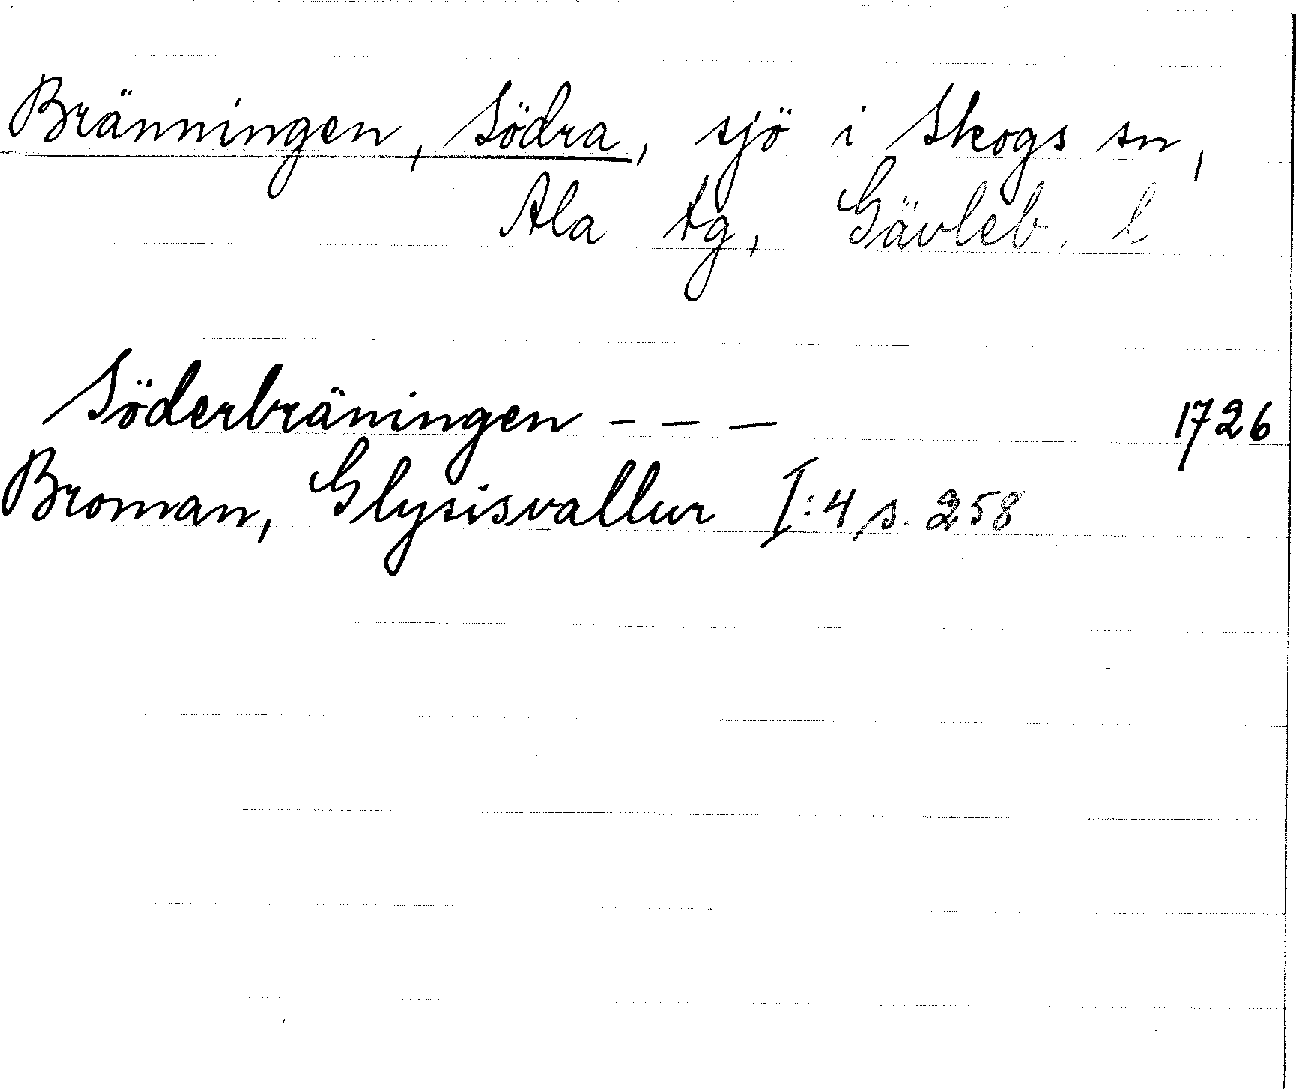 Bränningen, Södra, sjö i Skogs sn,
Ala tg, Gävleb. l
Söderbräningen - - - 1726
Broman, Glysisvallur I:4 s. 258